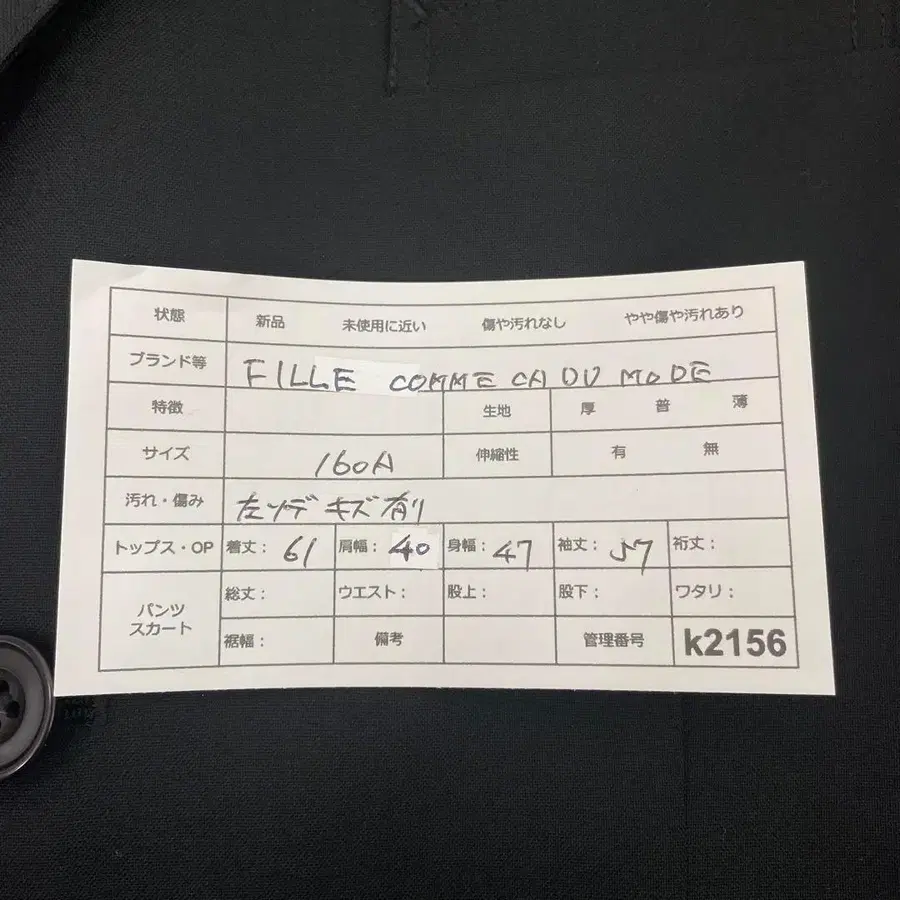 状態 新品 未使用に近い 傷や汚れなし やや傷や汚れあり
ブランド等 FILLE COMME CA DU MODE
特徴 生地 厚 普 薄
サイズ 160A 伸縮性 有 無
汚れ・傷み 左ソデ キズ有り
トップス・OP 着丈: 61 肩幅: 40 身幅: 47 袖丈: 57 裄丈:
パンツ スカート 総丈: ウエスト: 股上: 股下: ワタリ:
裾幅: 備考 管理番号 k2156